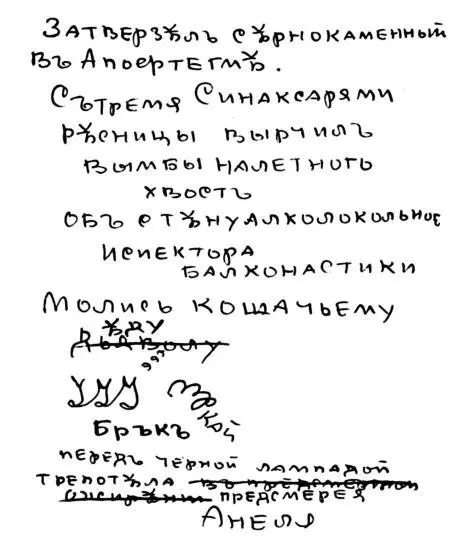 Затверзѣлъ сѣрнокаменный
въ Апоертегмѣ.
Сътремя Синаксарями
рѣсницы вырчилъ
вымбы налетного
хвостъ
объ стѣнуалколокольное
испектора
балхонастики
Молись кошачьему
ѣду
Дьяволу
УУУ
Брькъ
передъ черной лампадой
трепотѣла
предсмерея
Анеля